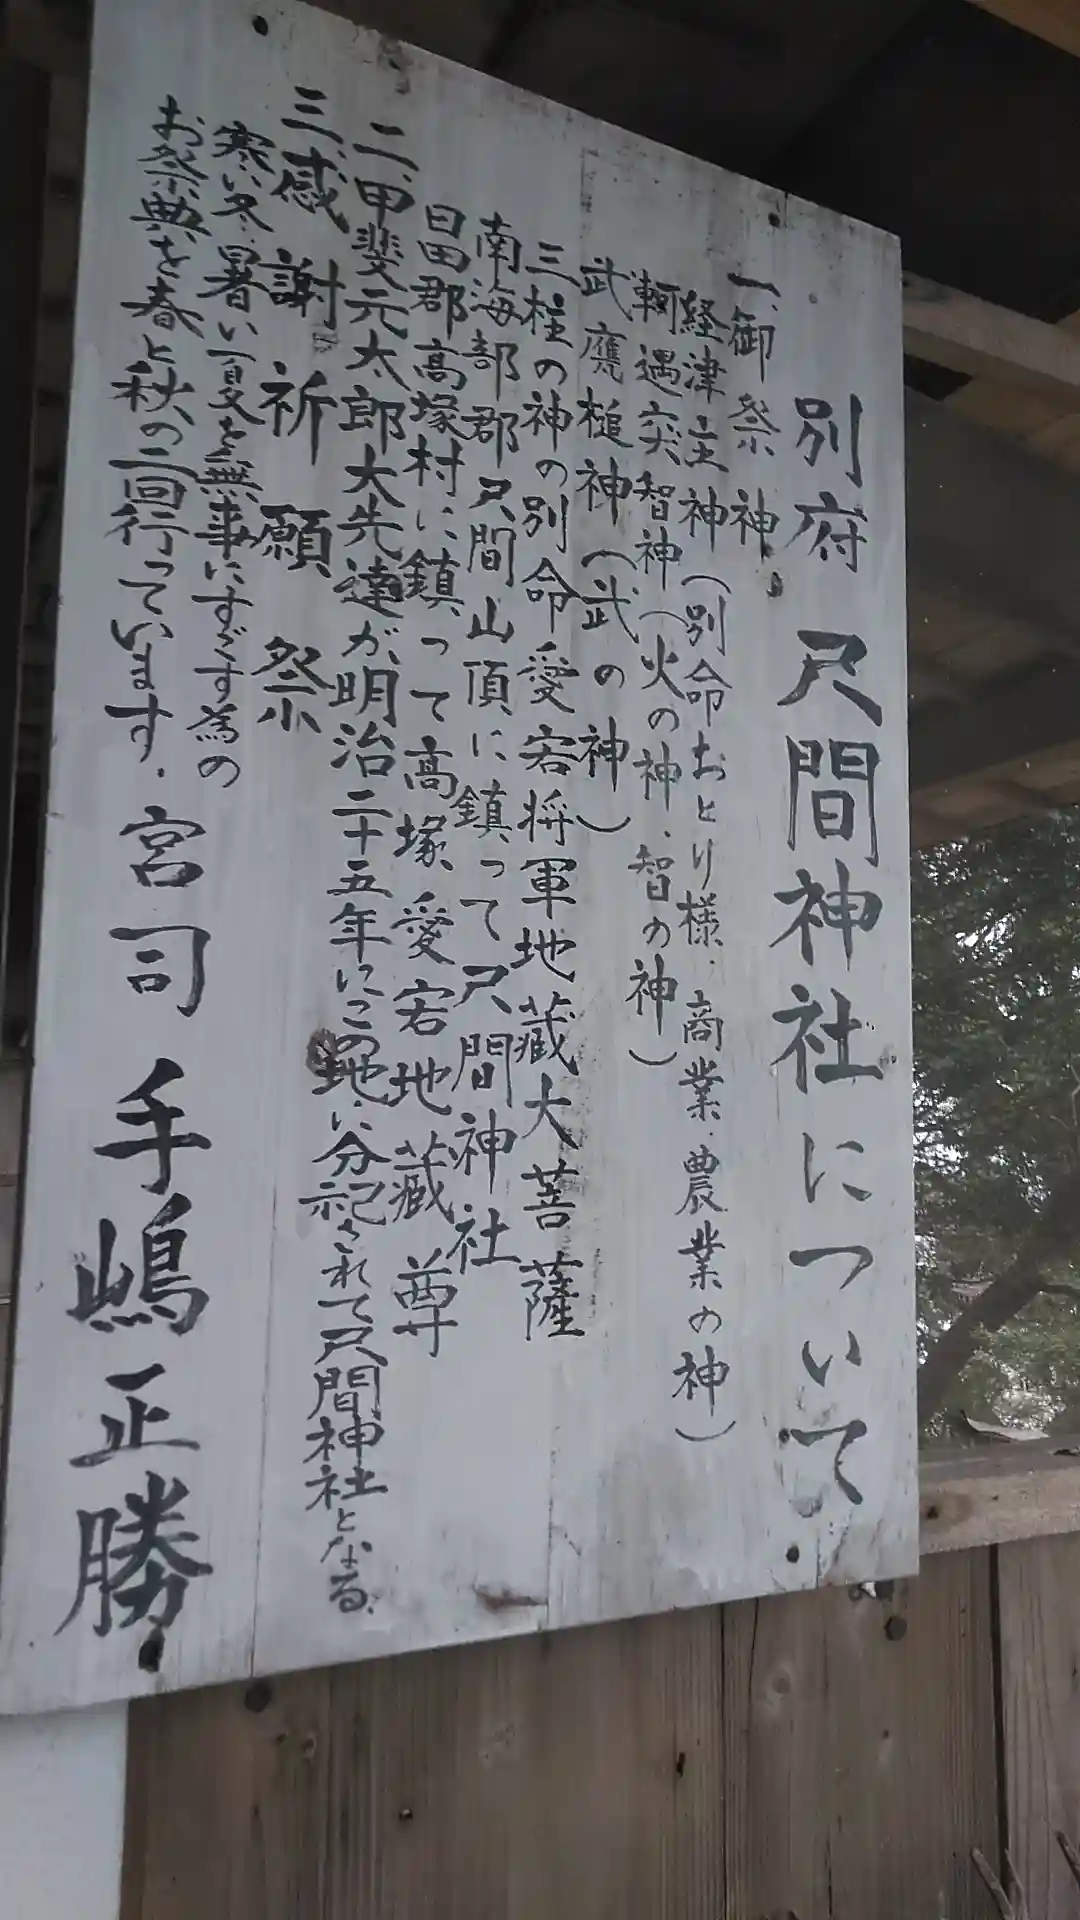 別府 尺間神社について
一、御祭神
経津主神(別命おとり様.商業.農業の神)
軻遇突智神(火の神.智の神)
武甕槌神(武の神)
三柱の神の別命愛宕将軍地蔵大菩薩
南海部郡尺間山頂に鎮って尺間神社
日田郡高塚村に鎮って高塚愛宕地蔵尊
二、甲斐元太郎大先達が明治二十五年にこの地に分祀されて尺間神社となる.
三、感謝祈願祭
寒い冬.暑い夏を無事にすごす為の
お祭典を春と秋の二回行っています.
宮司 手嶋正勝